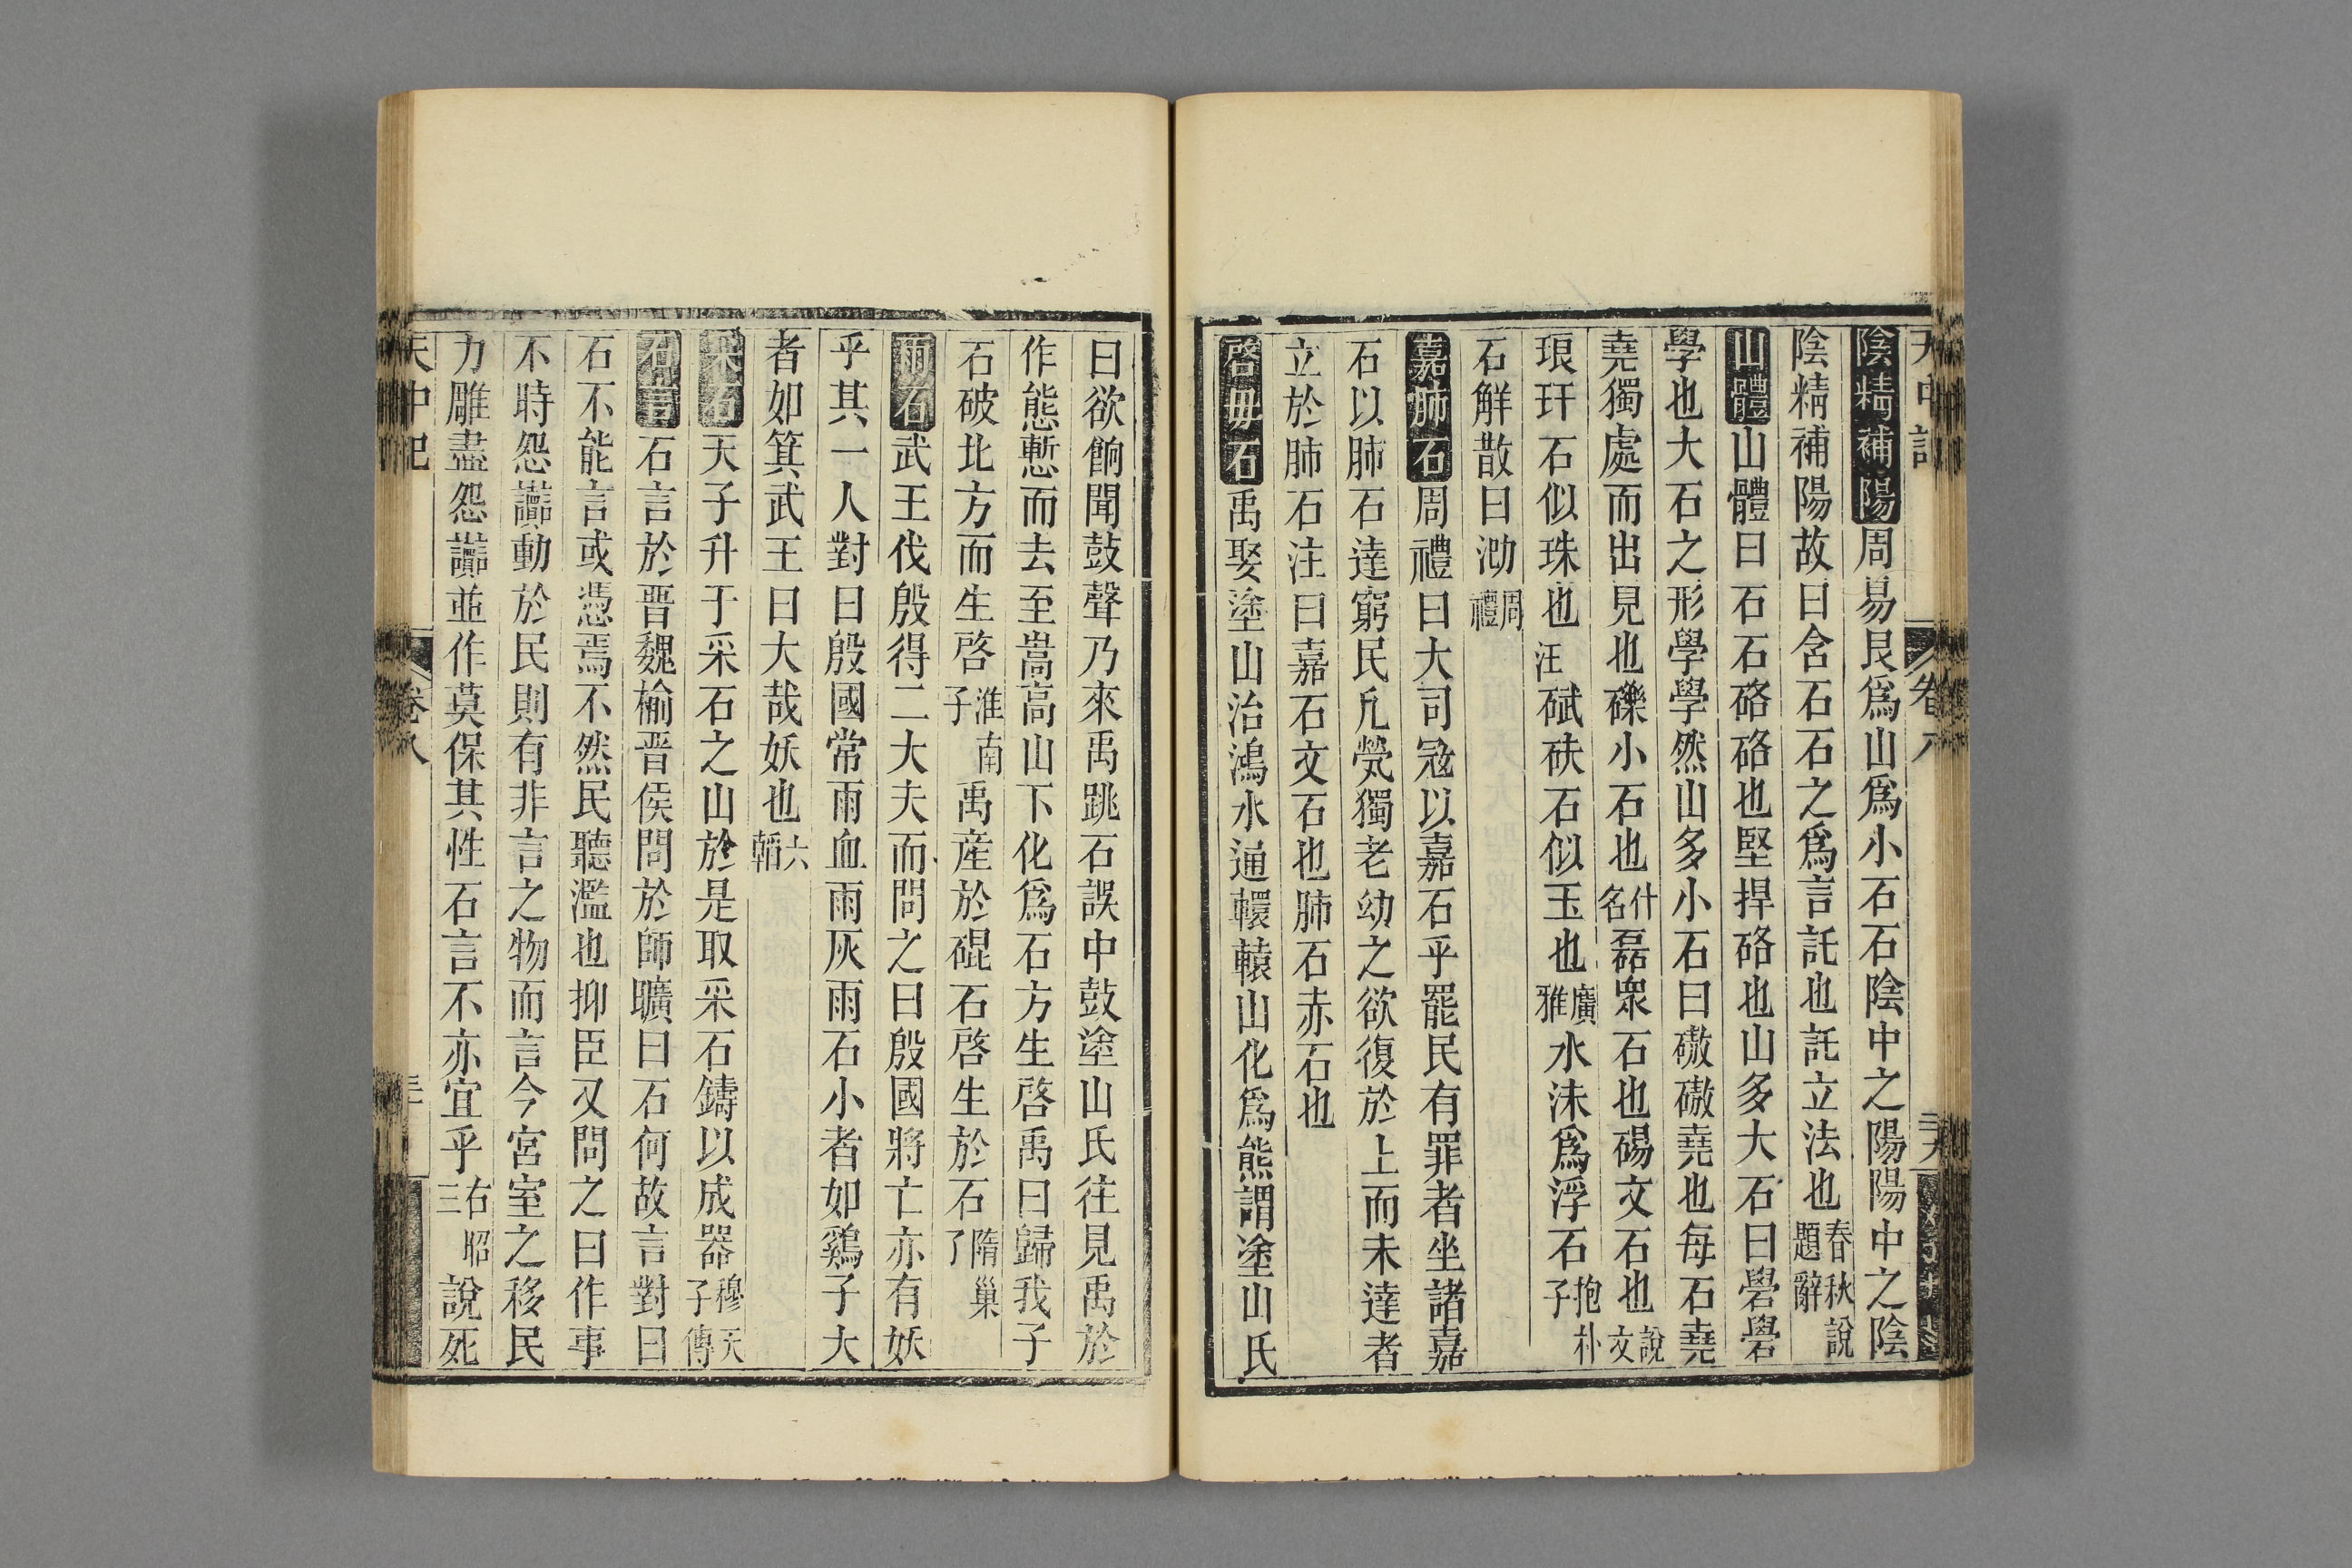 陰精補陽周易艮爲山爲小石石陰中之陽陽中之陰
陰精補陽故曰含石石之爲言託也託立法也春秋說題辭
山體山體曰石石硌硌也堅捍硌也山多大石曰礐礐
學也大石之形學學然山多小石曰磝磝堯也每石堯
堯獨處而出見也礫小石也什名磊衆石也碭文石也說文
琅玕石似珠也汪碔砆石似玉也廣雅水沫爲浮石抱朴子
石觧散曰泐周禮
嘉肺石周禮曰大司冦以嘉石乎罷民有罪者坐諸嘉
石以肺石達窮民凡煢獨老幼之欲復於上而未達者
立於肺石注曰嘉石文石也肺石赤石也
啓毋石禹娶塗山治鴻水通轘轅山化爲熊謂塗山氏
曰欲餉聞鼓聲乃來禹跳石誤中鼓塗山氏往見禹於
作態慙而去至嵩高山下化爲石方生啓禹曰歸我子
石破北方而生啓淮南子禹産於碮石啓生於石隋巢了
雨石武王伐殷得二大夫而問之曰殷國將亡亦有妖
乎其一人對曰殷國常雨血雨灰雨石小者如鷄子大
者如箕武王曰大哉妖也六韜
采石天子升于采石之山於是取采石鑄以成器穆天子傳
石言石言於晋魏榆晋侯問於師曠曰石何故言對曰
石不能言或憑焉不然民聽濫也抑臣又問之曰作事
不時怨讟動於民則有非言之物而言今宮室之移民
力雕盡怨讟並作莫保其性石言不亦宜乎右昭三說死
天中記 卷八